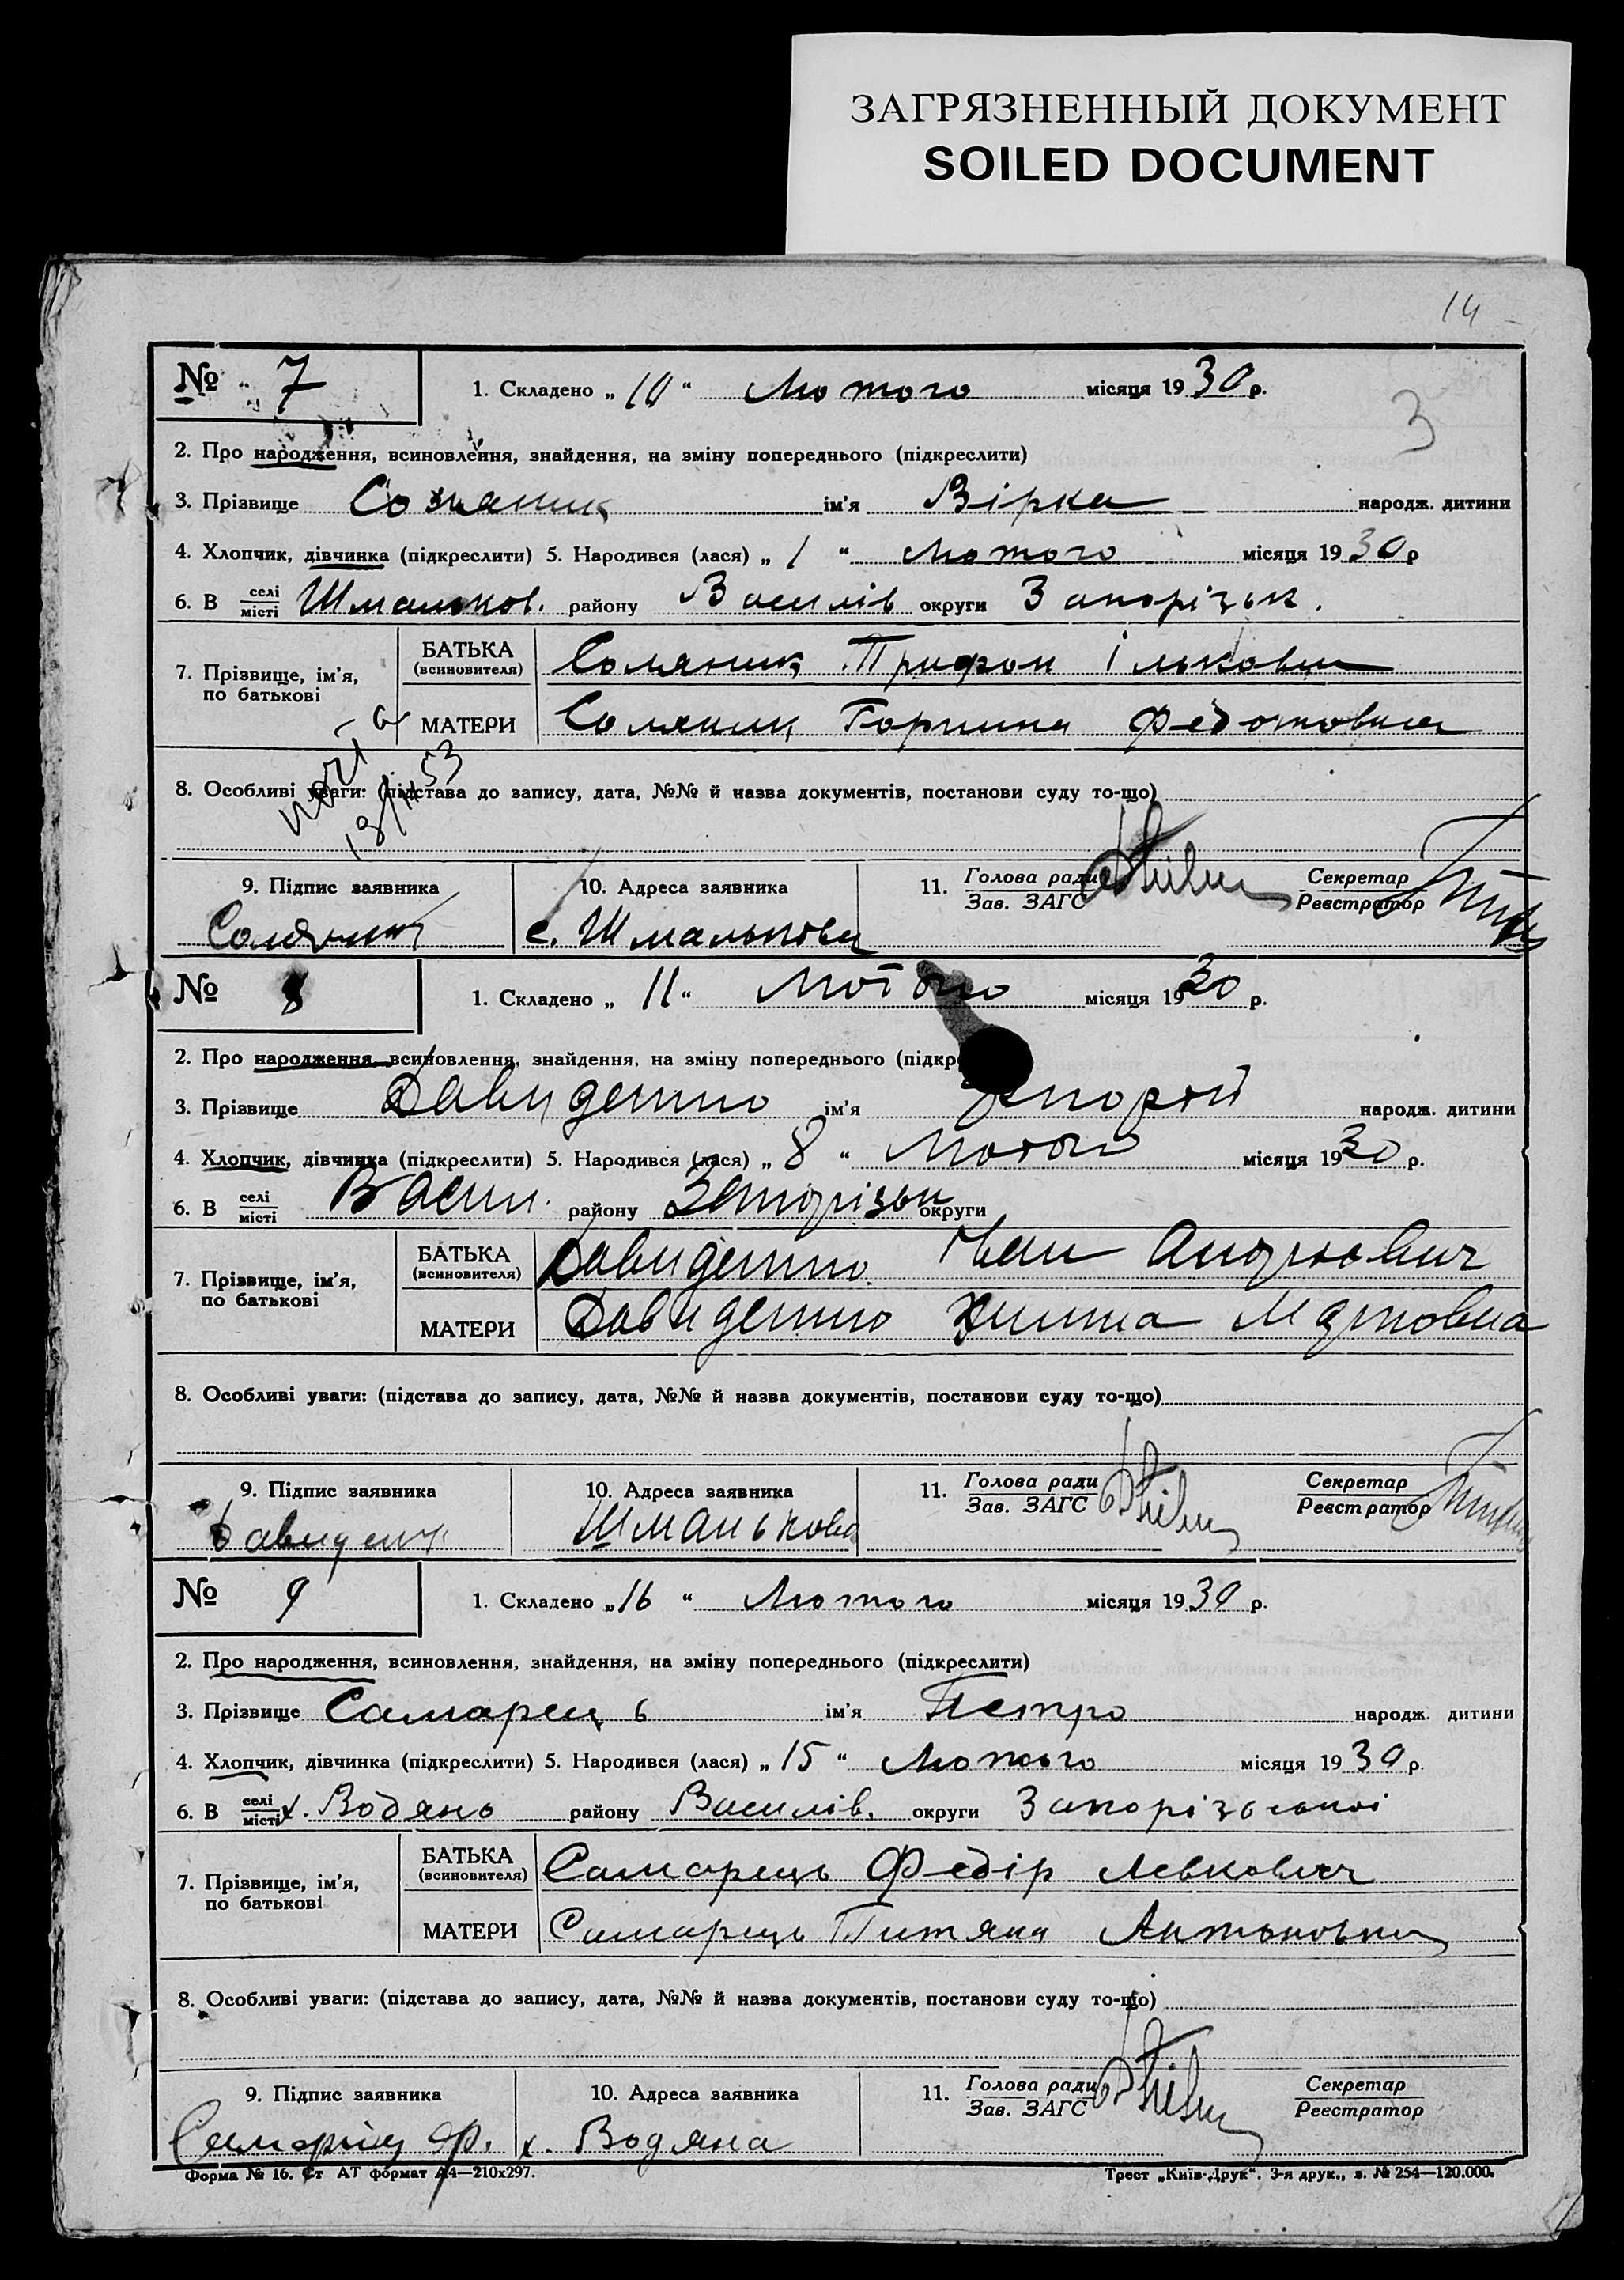 ЗАГРЯЗНЕННЫЙ ДОКУМЕНТ
SOILED DOCUMENT
14
№ 7
1. Складено „ 10 “ Лютого місяця 1930 р.
3
2. Про народження, всиновлення, знайдення, на зміну попереднього (підкреслити)
3. Прізвище Соляник ім'я Вірка народж. дитини
4. Хлопчик, дівчинка (підкреслити) 5. Народився (лася) „ 1 “ Лютого місяця 1930 р
6. В селі/місті Шмальков. району Василів округи Запорізьк.
7. Прізвище, ім'я, по батькові
БАТЬКА (всиновителя) Соляник Трифон Ількович
МАТЕРИ Соляник Горпина Федотовна
8. Особливі уваги: (підстава до запису, дата, №№ й назва документів, постанови суду то-що)
9. Підпис заявника
10. Адреса заявника
11. Голова ради / Зав. ЗАГС
Секретар / Реєстратор
Соляник
с. Шмалькова
№ 8
1. Складено „ 11 “ Лютого місяця 1930 р.
2. Про народження, всиновлення, знайдення, на зміну попереднього
3. Прізвище Давиденко ім'я народж. дитини
4. Хлопчик, дівчинка (підкреслити) 5. Народився (лася) „ 8 “ Лютого місяця 1930 р.
6. В селі/місті Васил. району Запорізьк округи
7. Прізвище, ім'я, по батькові
БАТЬКА (всиновителя) Давиденко Іван Андрієвич
МАТЕРИ Давиденко Марковна
8. Особливі уваги: (підстава до запису, дата, №№ й назва документів, постанови суду то-що)
9. Підпис заявника
10. Адреса заявника
11. Голова ради / Зав. ЗАГС
Секретар / Реєстратор
Давиденк
Шмалькова
№ 9
1. Складено „ 16 “ Лютого місяця 1930 р.
2. Про народження, всиновлення, знайдення, на зміну попереднього (підкреслити)
3. Прізвище Самарець ім'я Петро народж. дитини
4. Хлопчик, дівчинка (підкреслити) 5. Народився (лася) „ 15 “ Лютого місяця 1930 р.
6. В селі/місті х. Водяно району Василів. округи Запорізської
7. Прізвище, ім'я, по батькові
БАТЬКА (всиновителя) Самарець Федір Левкович
МАТЕРИ Самарець Титяна Антоновна
8. Особливі уваги: (підстава до запису, дата, №№ й назва документів, постанови суду то-що)
9. Підпис заявника
10. Адреса заявника
11. Голова ради / Зав. ЗАГС
Секретар / Реєстратор
х. Водяна
Форма № 16. Ст АТ формат А4—210х297.
Трест „Київ-Друк“. 3-я друк., з. № 254—120.000.